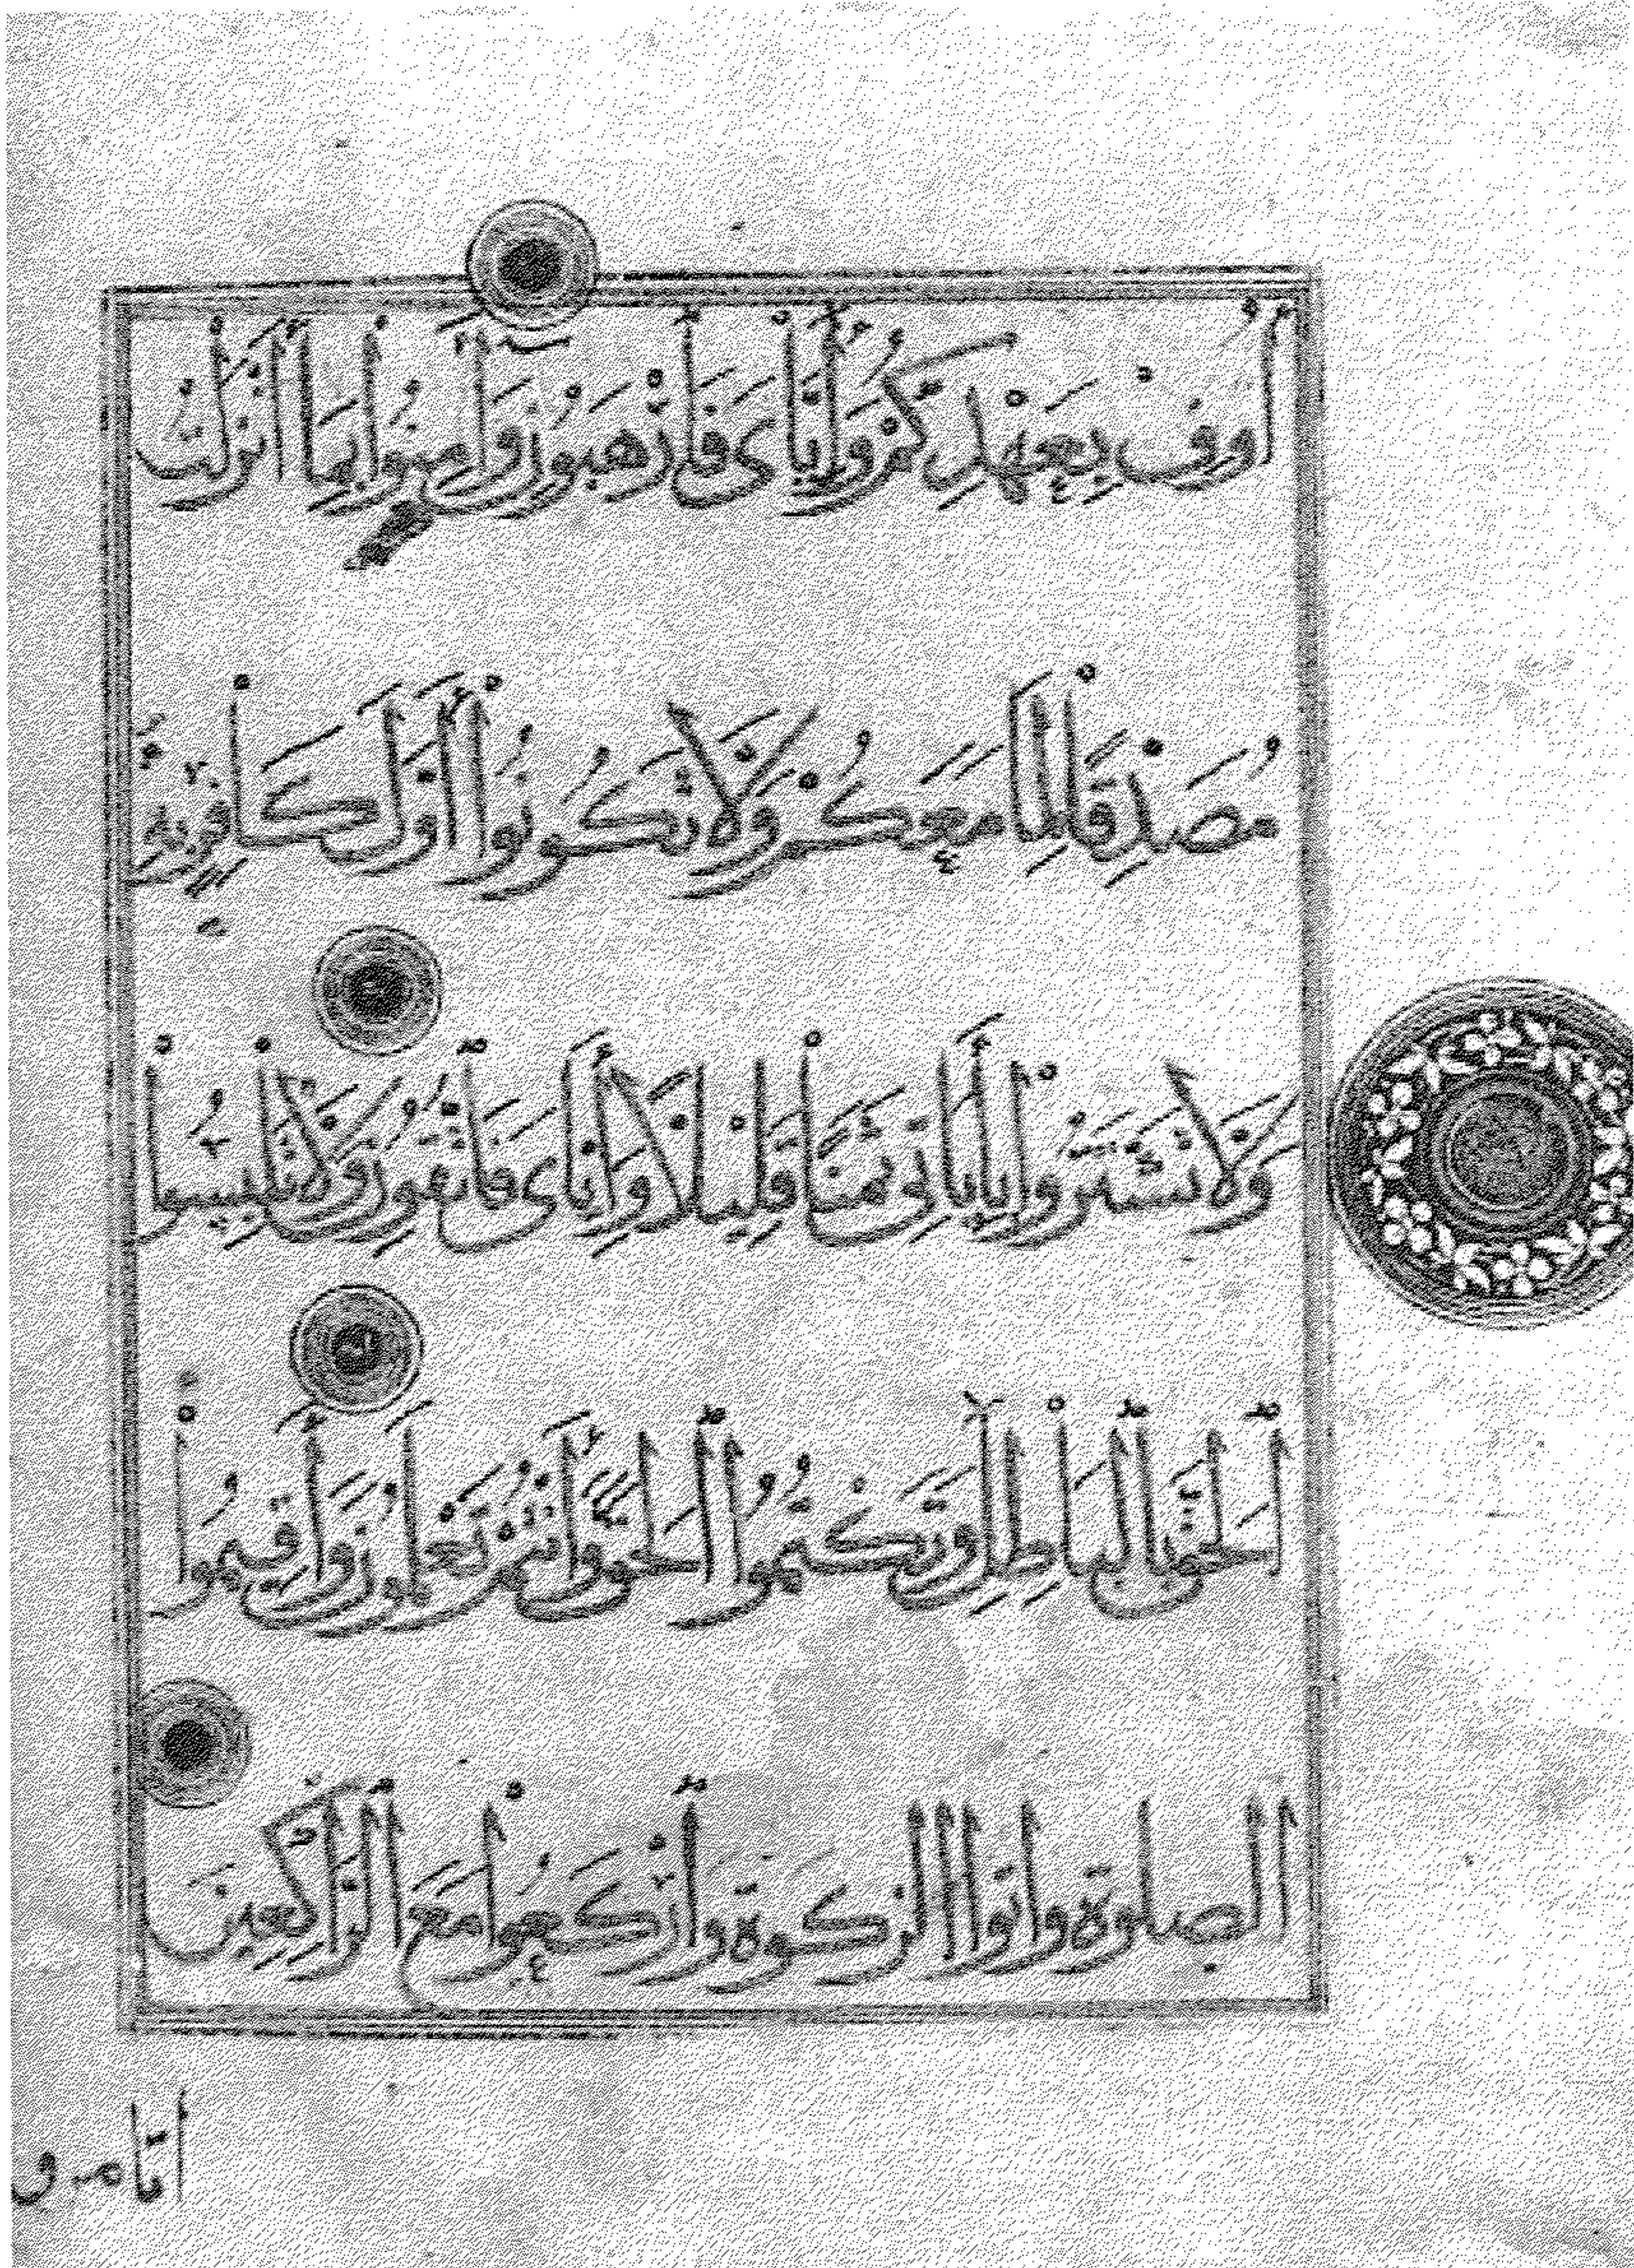 أُوفِ بِعَهْدِكُمْ وَإِيَّايَ فَارْهَبُونِ وَآمِنُوا بِمَا أَنْزَلْتُ
مُصَدِّقًا لِمَا مَعَكُمْ وَلَا تَكُونُوا أَوَّلَ كَافِرٍ بِهِ
وَلَا تَشْتَرُوا بِآيَاتِي ثَمَنًا قَلِيلًا وَإِيَّايَ فَاتَّقُونِ وَلَا تَلْبِسُوا
الْحَقَّ بِالْبَاطِلِ وَتَكْتُمُوا الْحَقَّ وَأَنْتُمْ تَعْلَمُونَ وَأَقِيمُوا
الصلوة واتوا الزكوة وَارْكَعُوا مَعَ الرَّاكِعِينَ
أتامرو